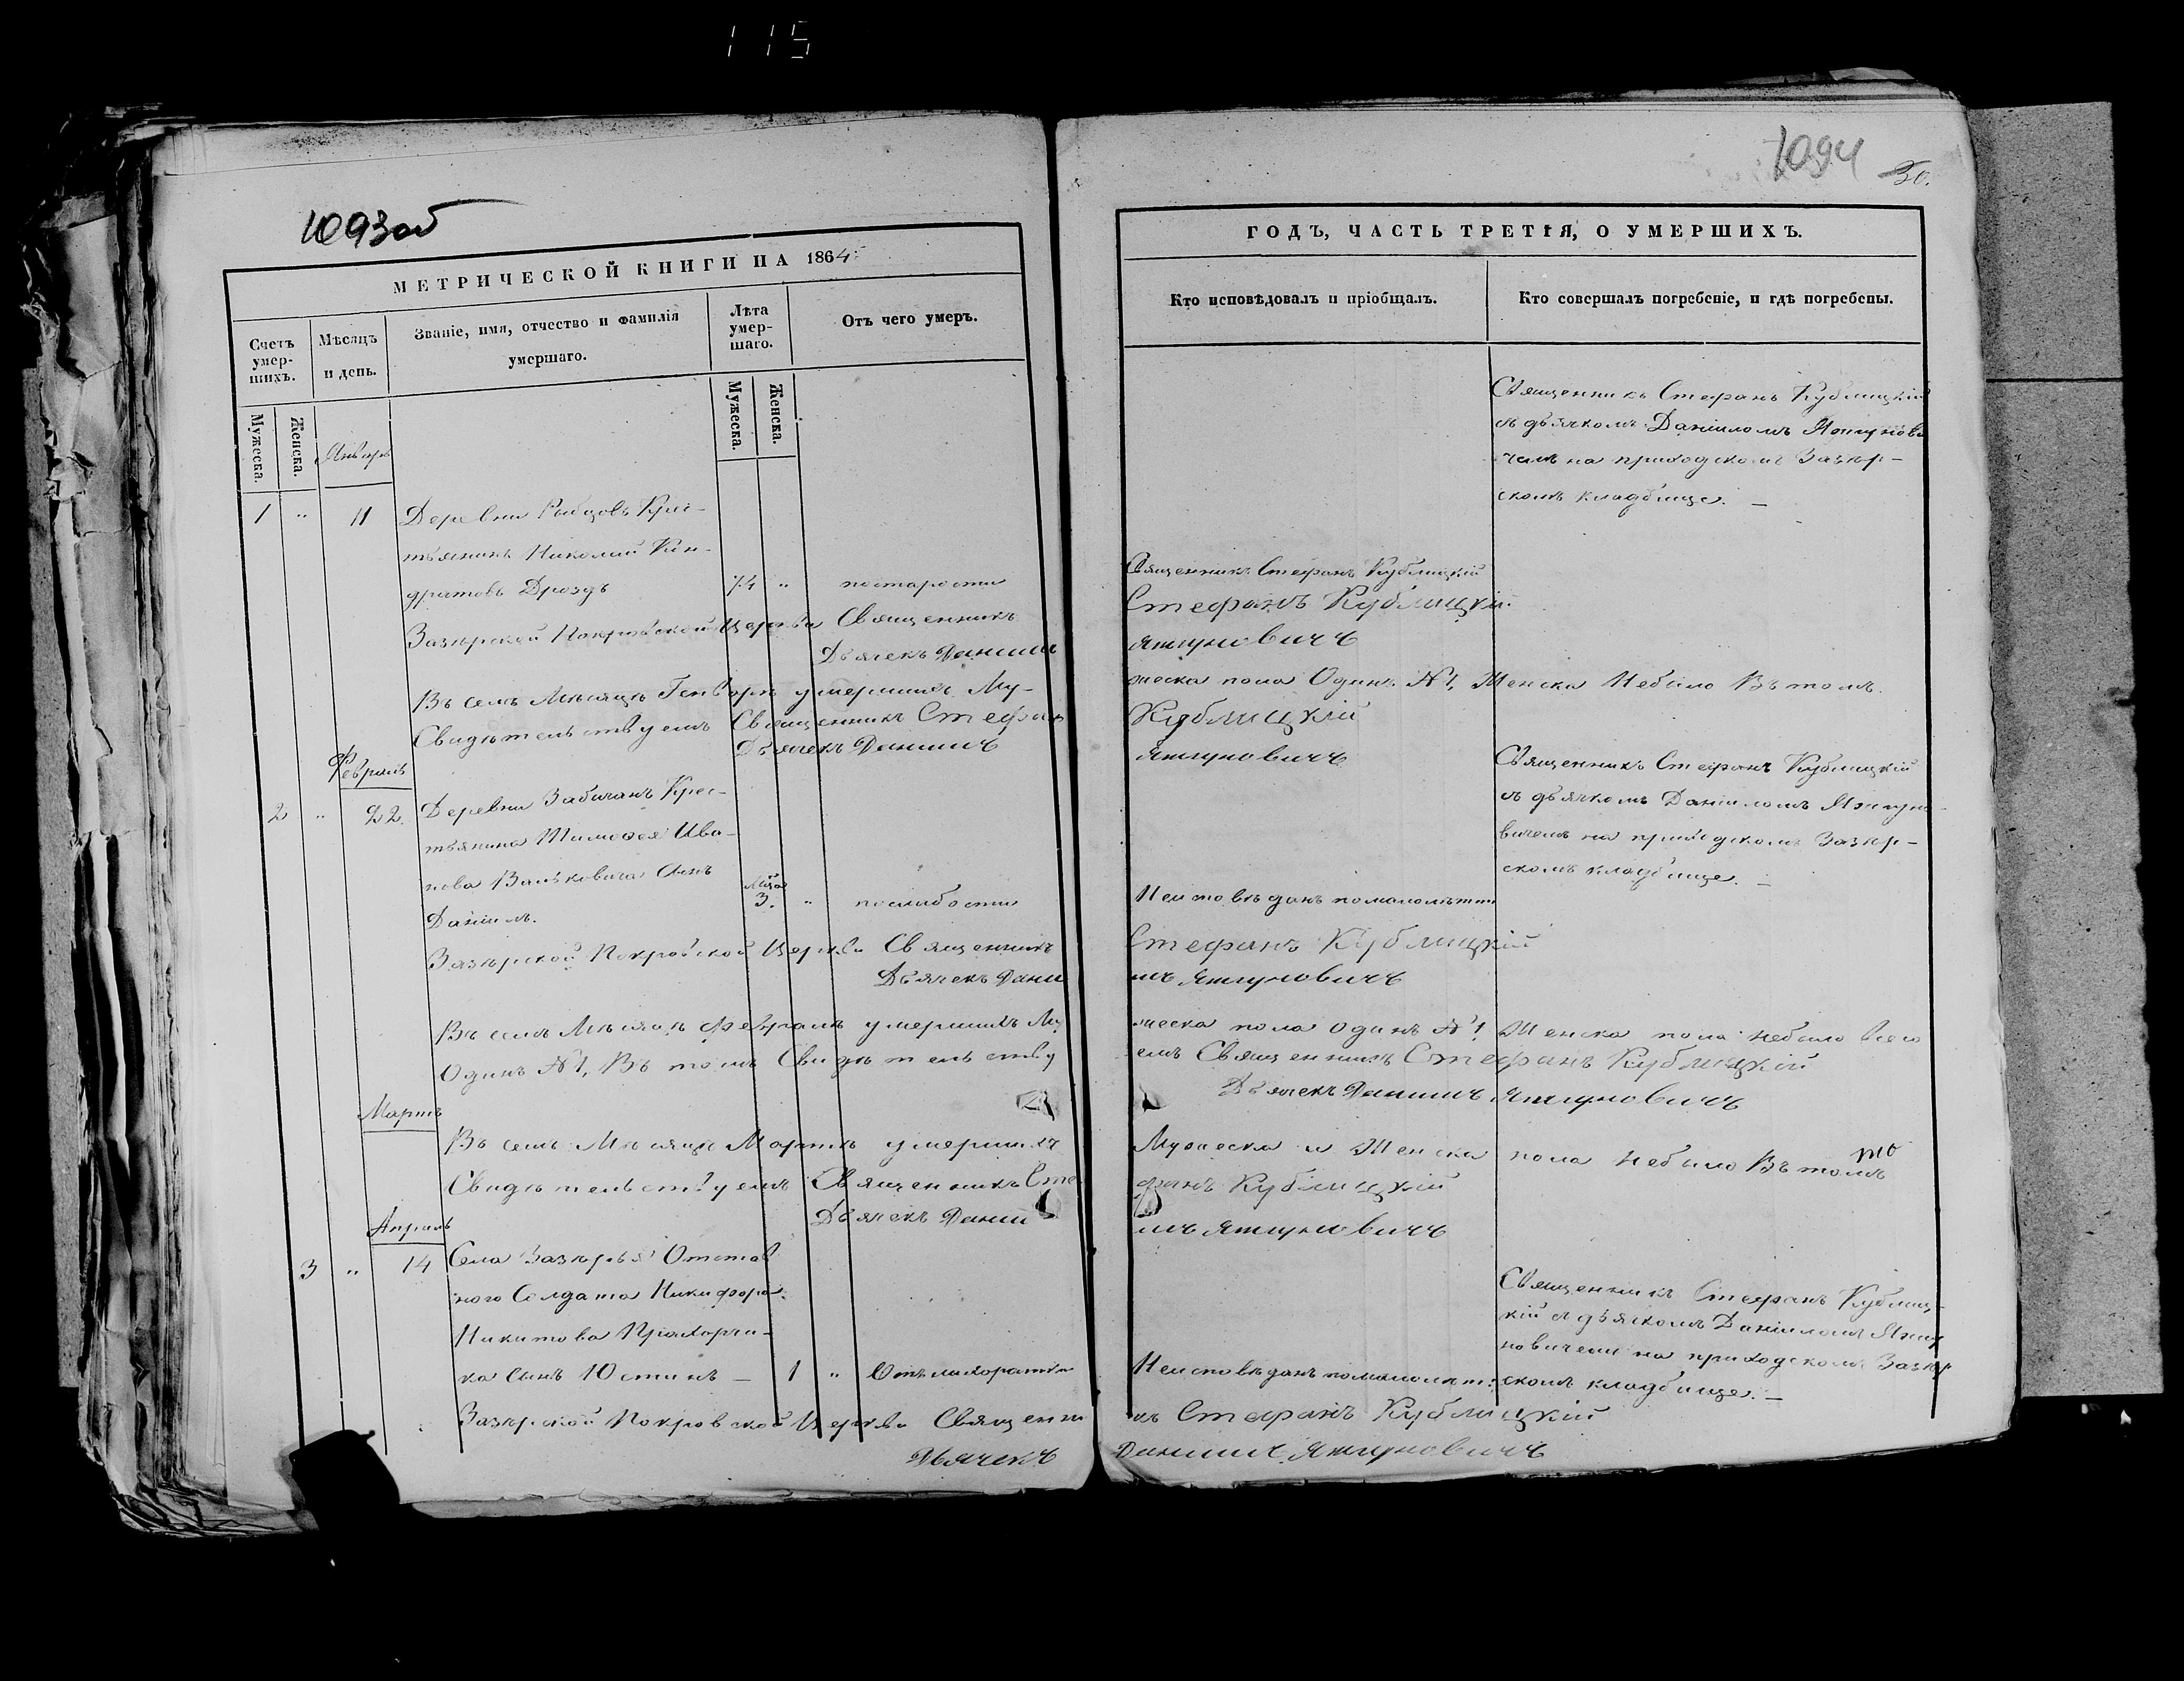 115
1093об
МЕТРИЧЕСКОЙ КНИГИ НА 1864
Счетъ умер-шихъ.
Мѣсяцъ и день.
Званіе, имя, отчество и фамилія умершаго.
Лѣта умер-шаго.
Отъ чего умеръ.
Мужеска.
Женска.
Мужеска.
Женска.
Январь
1 " 11 Деревни Рыбцовъ Крес-
тьянинъ Николай Кон-
дратовъ Дроздъ 74 " по старости
Зазѣрской Покровской Церкви Священникъ
Дьячекъ Даниилъ
Въ семъ Мѣсяцѣ Генварѣ умершихъ Му-
Свидѣтельствуемъ Священникъ Стефанъ
Дьячекъ Даниилъ
Февраль
2 " 22. Деревни Забичанъ Крес-
тьянина Тимоѳея Ива-
нова Сынъ
Даніилъ. 3. " по слабости
Зазѣрской Покровской Церкви Священникъ
Дьячекъ Дани
Въ семъ Мѣсяцѣ Февралѣ умершихъ Му
Одинъ №1, Въ томъ Свидѣтельству
Мартъ
Въ семъ Мѣсяцѣ Мартѣ умершихъ
Свидѣтельствуемъ Священникъ Сте
Дьячекъ Дании
Апрѣль
3 " 14 Села Зазѣрья Отстав
ного Солдата Никифора
Никитова Прихорчи-
ка Сынъ Юстинъ — 1 " Отъ лихоратки
Зазѣрской Покровской Церкви Священни
Дьячекъ
1094
30.
ГОДЪ, ЧАСТЬ ТРЕТІЯ, О УМЕРШИХЪ.
Кто исповѣдовалъ и пріобщалъ.
Кто совершалъ погребеніе, и гдѣ погребены.
Священникъ Стефанъ Кублицкій
съ дьячкомъ Даніиломъ Яхнунови
чемъ на приходскомъ Зазѣр-
скомъ кладбище. —
Священникъ Стефанъ Кублицкій
Стефанъ Кублицкій.
Яхнуновичъ
жеска пола Одинъ №1, Женска Небыло Въ томъ
Кублицкій
Яхнуновичъ
Священникъ Стефанъ Кублицкій
съ дьячкомъ Даніиломъ Яхнуно
вичемъ на приходскомъ Зазѣр-
скомъ кладбище. —
Неисповѣданъ по малолѣтст
Стефанъ Кублицкій
илъ Яхнуновичъ
жеска пола одинъ №1 Женска пола небыло всего
емъ Священникъ Стефанъ Кублицкій
Дьячекъ Даниилъ Яхнуновичъ
Мужеска и Женска пола небыло Въ томъ
что
фанъ Кублицкій
илъ Яхнуновичъ
Священникъ Стефанъ Кублиц-
кій съ дьячкомъ Даніиломъ Яхну
новичемъ на приходскомъ Зазѣр
Неисповѣданъ по малолѣт: скомъ кладбище. —
къ Стефанъ Кублицкій
Даниилъ Яхнуновичъ